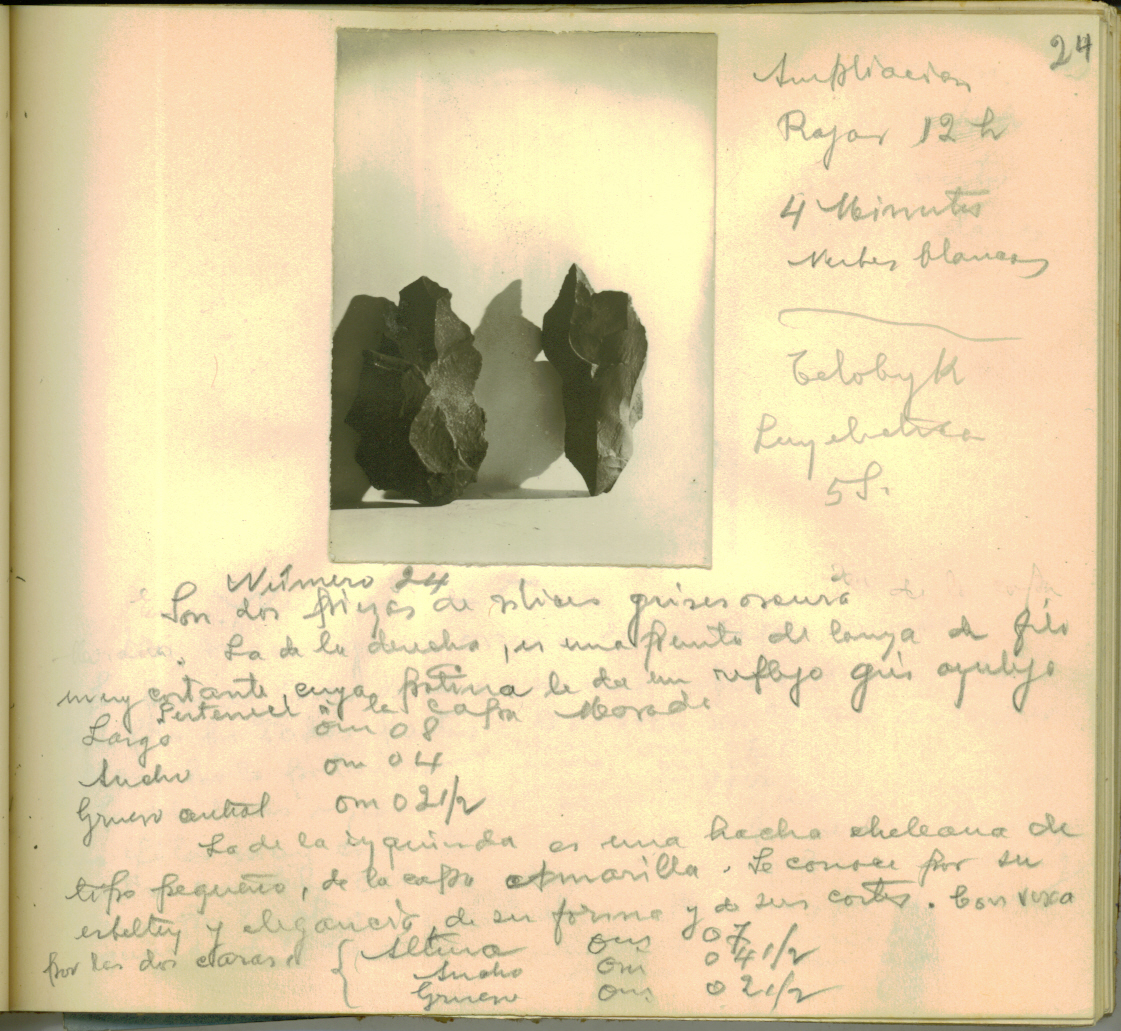 24
Ampliacion
Rajar 12 h
4 Minutos
Nubes blancas
Celobyk
Luz electrica
5 S.
Número 24
Son dos piezas de silices grises oscuro
. La de la derecha, es una punta de lanza de filo
muy cortante, cuya patina le da un reflejo gris azulejo
Pertenece a la capa Morada
Largo 0m 08
Ancho 0m 04
Grueso central 0m 021/2
La de la izquierda es una hacha cheleana de
tipo pequeño, de la capa amarilla. Se conoce por su
esbeltez y elegancia, de su forma y de sus cortes. Convexa
por las dos caras. { Altura 0m 07
Ancho 0m 041/2
Grueso 0m 021/2